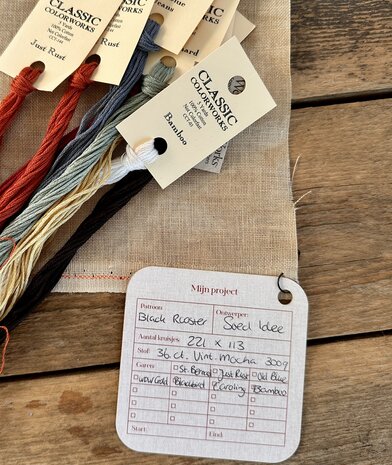 CLASSIC
COLORWORKS
5 Yards
100% Cotton
Not Colorfast
Just Rust
CLASSIC
COLORWORKS
5 Yards
100% Cotton
Not Colorfast
Bamboo
Mijn project
Patroon: Ontwerper:
Black Rooster Soed Idee
Aantal kruisjes: 221 x 113
Stof: 36 ct. Vint. Mocha 3009
Garen: Just Rust Old Blue
Blackbird Caroling Bamboo
Start: Eind: